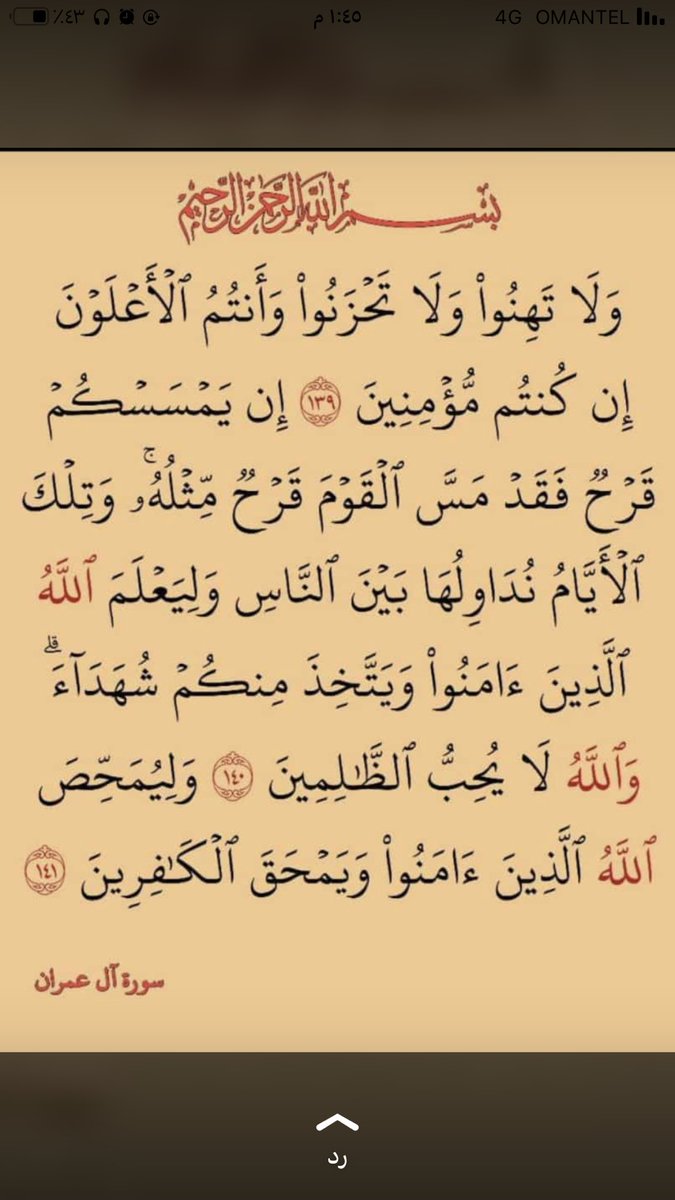 ٪٤٣ ١:٤٥ م 4G OMANTEL
بِسْمِ اللَّهِ الرَّحْمَٰنِ الرَّحِيمِ
وَلَا تَهِنُوا۟ وَلَا تَحْزَنُوا۟ وَأَنتُمُ ٱلْأَعْلَوْنَ
إِن كُنتُم مُّؤْمِنِينَ ١٣٩ إِن يَمْسَسْكُمْ
قَرْحٌ فَقَدْ مَسَّ ٱلْقَوْمَ قَرْحٌ مِّثْلُهُۥ ۚ وَتِلْكَ
ٱلْأَيَّامُ نُدَاوِلُهَا بَيْنَ ٱلنَّاسِ وَلِيَعْلَمَ ٱللَّهُ
ٱلَّذِينَ ءَامَنُوا۟ وَيَتَّخِذَ مِنكُمْ شُهَدَآءَ ۗ
وَٱللَّهُ لَا يُحِبُّ ٱلظَّٰلِمِينَ ١٤٠ وَلِيُمَحِّصَ
ٱللَّهُ ٱلَّذِينَ ءَامَنُوا۟ وَيَمْحَقَ ٱلْكَٰفِرِينَ ١٤١
سورة آل عمران
رد